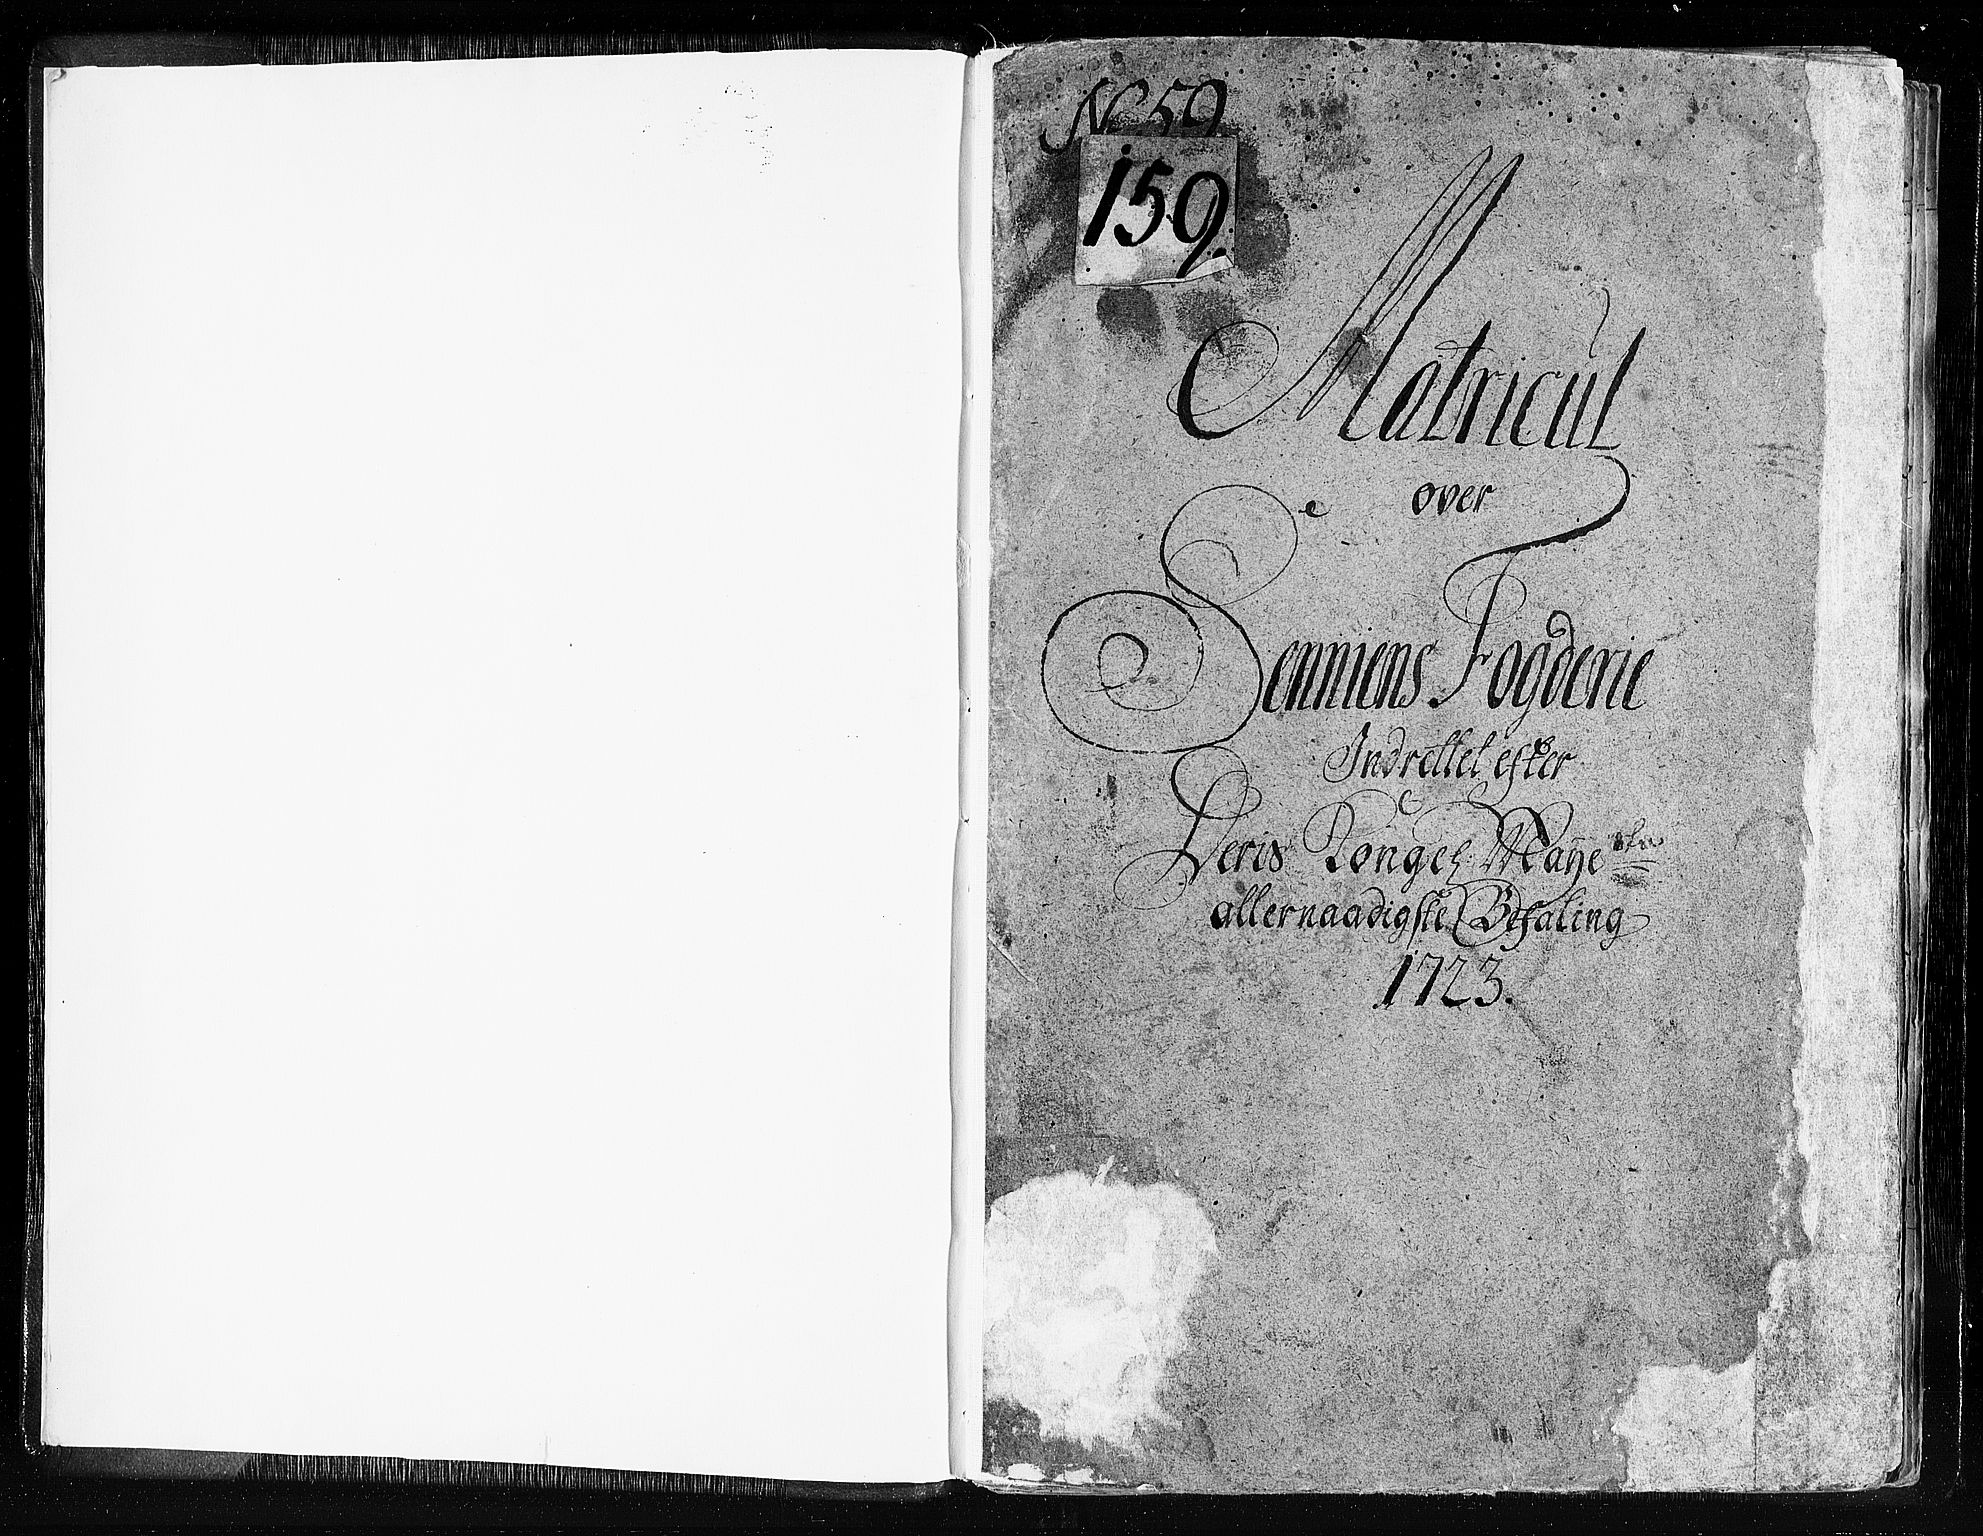 No 59
159.
Matricul
over
Senniens Fogderie
Indrettet efter
Deris Kongel Maye
allernaadigste Befaling
1723.